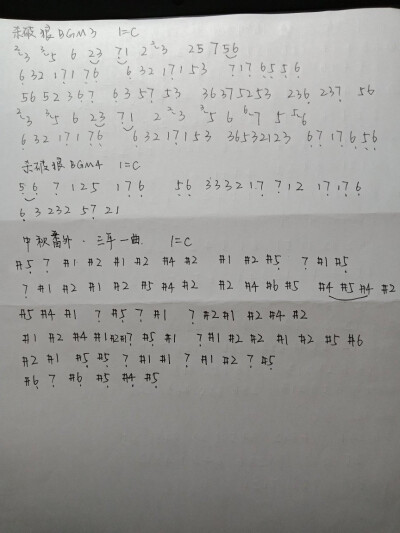 杀破狼 BGM3 1=C
²3 ³5 6 23 71 2 ²3 25 7 56
6 32 171 76 6 32 17153 7176556
56 52 367 63 57 53 36375253 236 237 56
²3 ³5 6 23 71 2 ²3 ³5 6 ⁶7 5 56
6 32 171 76 6 32 17153 36532123 6717656
杀破狼 BGM4 1=C
56 7 125 176 56 333217 712 17176
6 3 232 57 21
中秋番外·三年一曲 1=C
#5 7 #1 #2 #1 #2 #4 #2 #1 #2 #5 7 #1 #5
7 #1 #2 #1 #2 #5 #4 #2 #2 #4 #6 #5 #4 #5 #4 #2
#5 #4 #1 7 #5 7 #1 7 #2 #1 #2 #4 #2
#1 #2 #4 #1 #2#1 7 #5 #1 7 #1 #2 #2 #1 #2 #5 #6
#2 #1 #5 #5 7 #1 #1 7 #1 #2 7 #5
#6 7 #6 #5 #4 #5